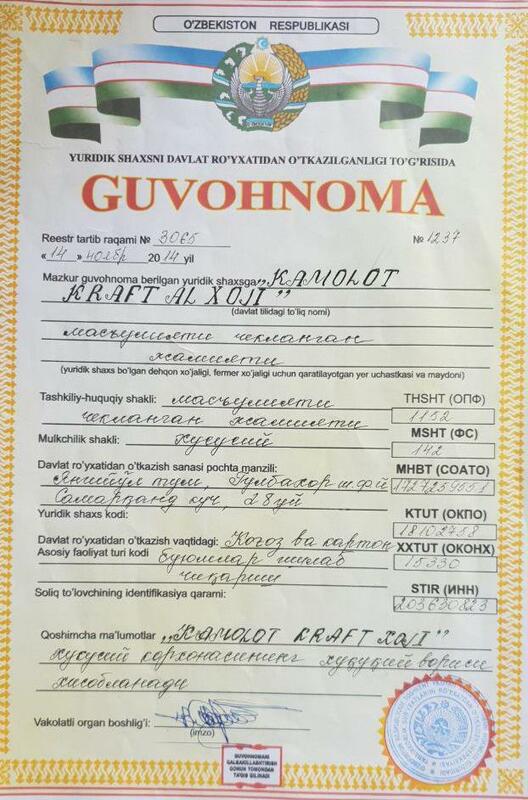 O'ZBEKISTON RESPUBLIKASI
YURIDIK SHAXSNI DAVLAT RO'YXATIDAN O'TKAZILGANLIGI TO'G'RISIDA
GUVOHNOMA
Reestr tartib raqami № 3065
№ 1237
« 14 » ноябр 2014 yil
Mazkur guvohnoma berilgan yuridik shaxsga „KAMOLOT
KRAFT AL XOJI”
(davlat tilidagi to'liq nomi)
масъулияти чекланган
жамияти
(yuridik shaxs bo'lgan dehqon xo'jaligi, fermer xo'jaligi uchun qaratilayotgan yer uchastkasi va maydoni)
Tashkiliy-huquqiy shakli: масъулияти
THSHT (ОПФ)
чекланган жамияти
1152
Mulkchilik shakli: хусусий
MSHT (ФС)
142
Davlat ro'yxatidan o'tkazish sanasi pochta manzili:
MHBT (СОАТО)
Янгийўл тум, Гулбахор ш.фй
1727259551
Самарқанд куч, 28 уй
Yuridik shaxs kodi:
KTUT (ОКПО)
18102758
Davlat ro'yxatidan o'tkazish vaqtidagi: Коғоз ва картон
Asosiy faoliyat turi kodi буюмлар ишлаб
XXTUT (ОКОНХ)
15330
чиқариш
Soliq to'lovchining identifikasiya qarami:
STIR (ИНН)
203630823
Qoshimcha ma'lumotlar „KAMOLOT KRAFT XOJI”
хусусий корхонасининг худудий вориси
хисобланади
Vakolatli organ boshlig'i:
(imzo)
GUVOHNOMANI
QALBAKILLASHTIRISH
QONUN TOMONDAN
TA'QIB QILINADI